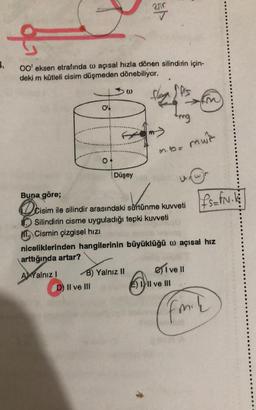 OO' eksen etrafında ω açısal hızla dönen silindirin için-
deki m kütleli cisim düşmeden dönebiliyor.
ω
O'
m
O
Düşey
mg
Buna göre;
I. Cisim ile silindir arasındaki sürtünme kuvveti
II. Silindirin cisme uyguladığı tepki kuvveti
III. Cismin çizgisel hızı
niceliklerinden hangilerinin büyüklüğü ω açısal hız
arttığında artar?
A) Yalnız I
B) Yalnız II
C) I ve II
D) II ve III
E) I, II ve III